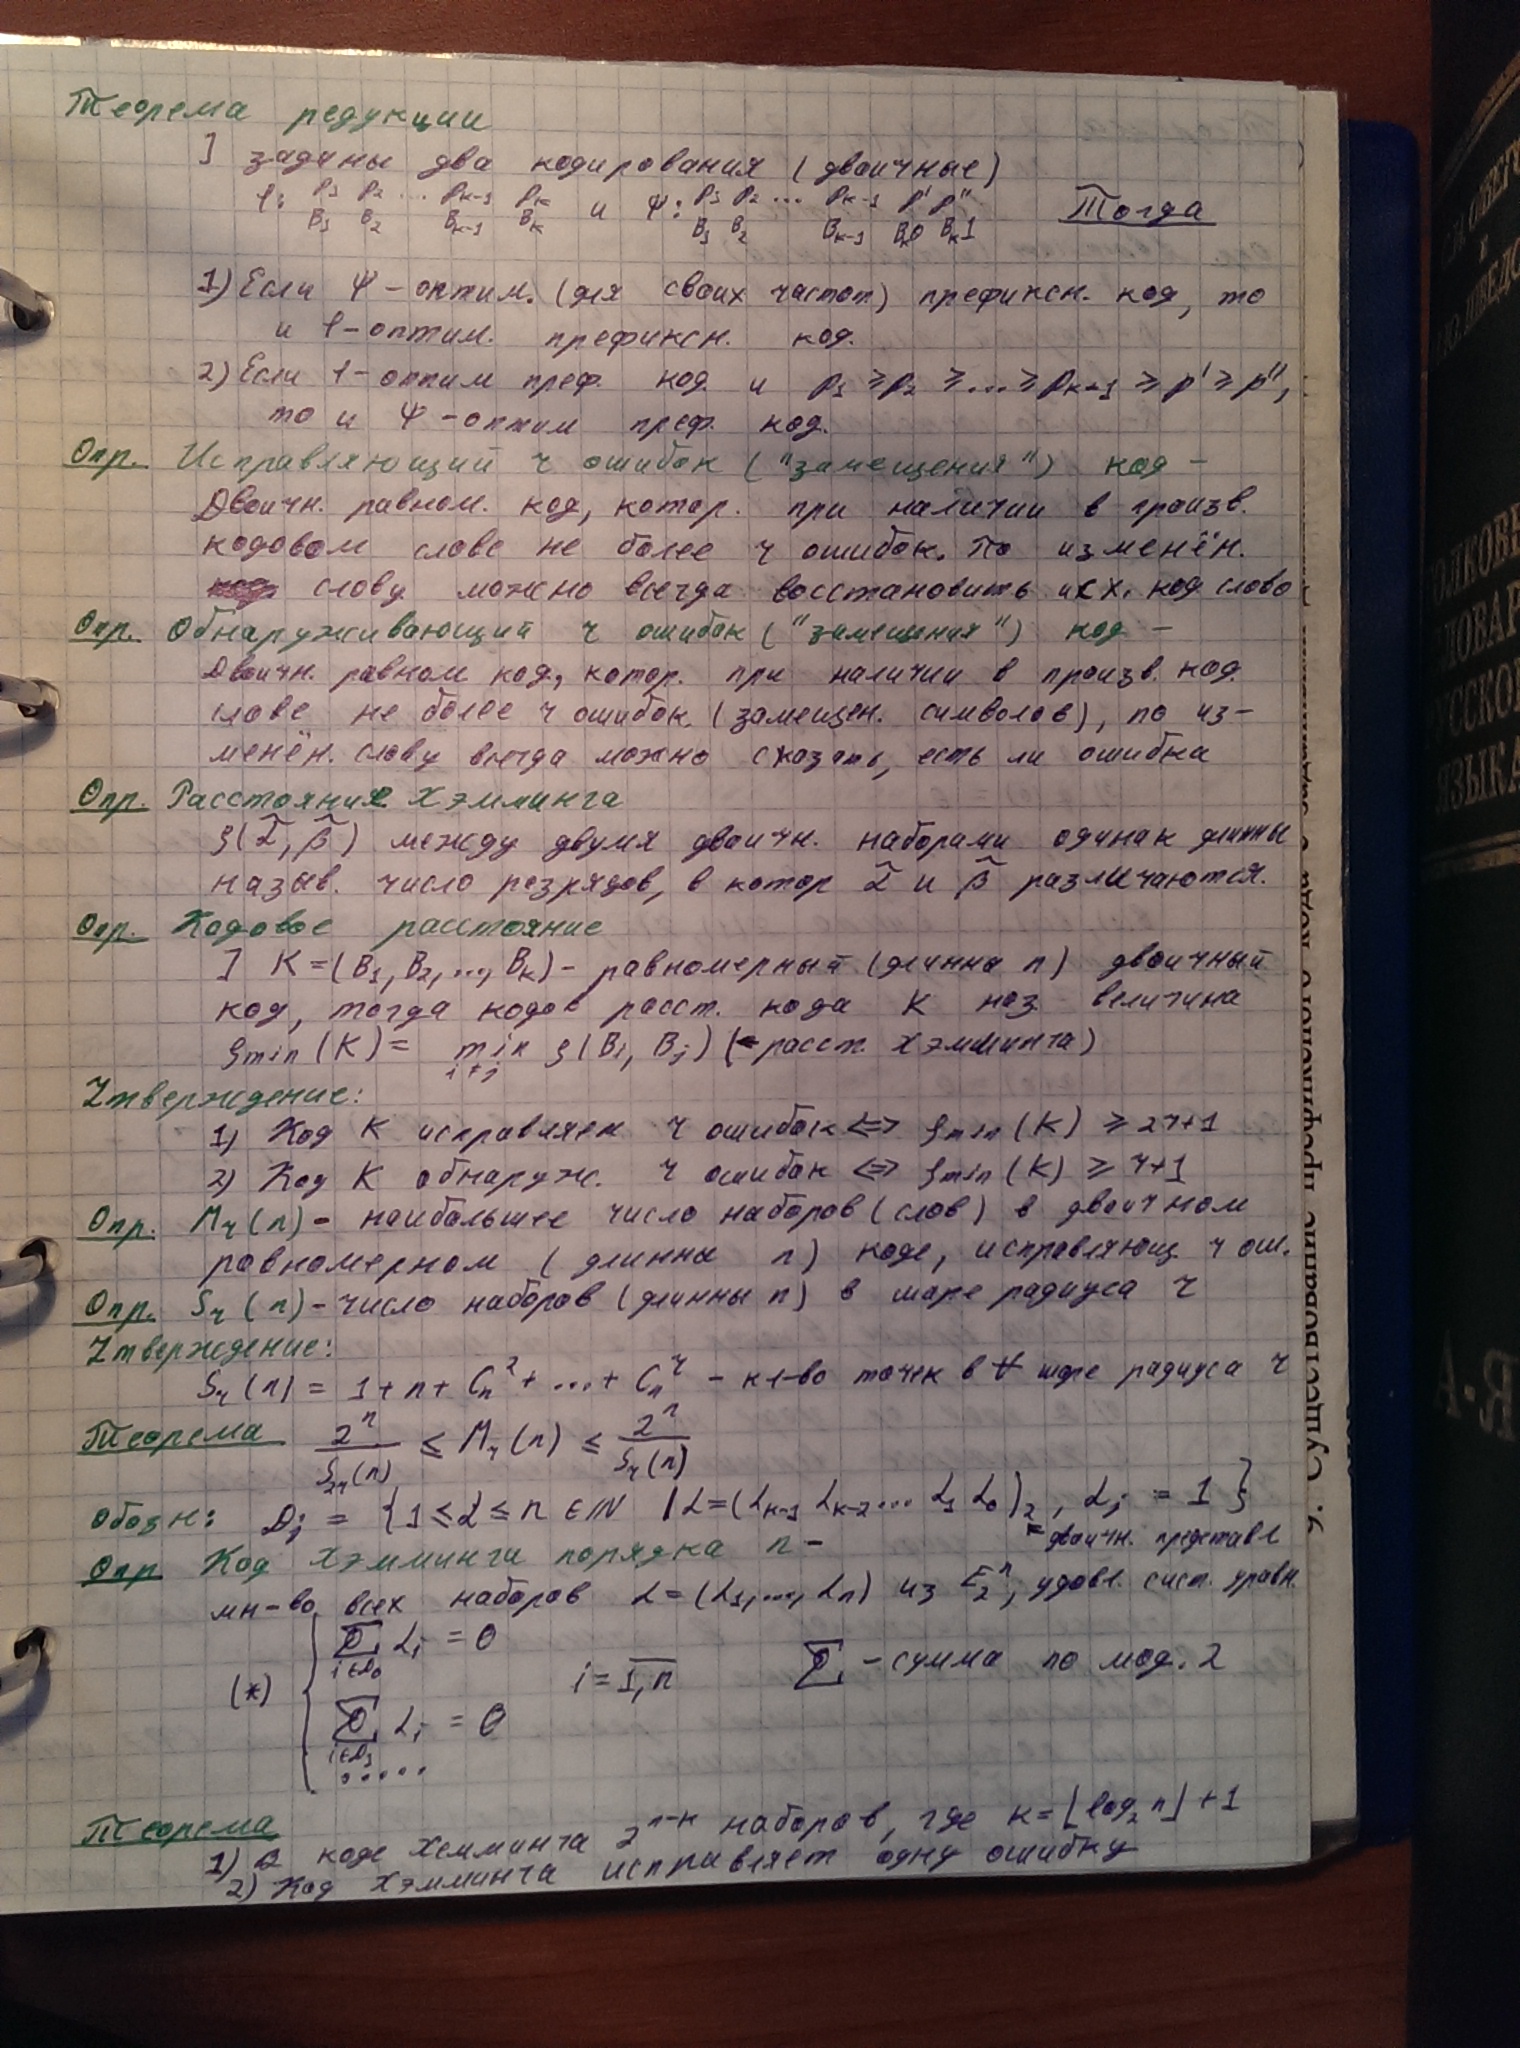 Теорема редукции
] заданы два кодирования (двоичные)
φ: p₁ p₂ ... pₖ₋₁ pₖ и ψ: p₁ p₂ ... pₖ₋₁ p' p'' Тогда
B₁ B₂ Bₖ₋₁ Bₖ B₁ B₂ Bₖ₋₁ Bₖ0 Bₖ1
1) Если ψ – оптим. (для своих частот) префиксн. код, то
и φ – оптим. префиксн. код.
2) Если φ – оптим преф. код и p₁ ≥ p₂ ≥ ... ≥ pₖ₋₁ ≥ p' ≥ p'',
то и ψ – оптим преф. код.
Опр. Исправляющий r ошибок ("замещения") код –
Двоичн. равном. код, котор. при наличии в произв.
кодовом слове не более r ошибок. По изменён.
слову можно всегда восстановить исх. код слово
Опр. Обнаруживающий r ошибок ("замещения") код –
Двоичн. равном код, котор. при наличии в произв. код.
слове не более r ошибок (замещен. символов), по из-
менён. слову всегда можно сказать, есть ли ошибка
Опр. Расстояние Хэмминга
ρ(α̃, β̃) между двумя двоичн. наборами одинак длинны
назыв. число розрядов, в котор α̃ и β̃ различаются.
Опр. Кодовое расстояние
] K = (B₁, B₂, ..., Bₖ) – равномерный (длинна n) двоичный
код, тогда кодов расст. кода K наз величина
ρmin(K) = min ρ(Bi, Bj) (← расст. Хэмминга)
i ≠ j
Утверждение:
1) Код K исправляет r ошибок ⟺ ρmin(K) ≥ 2r+1
2) Код K обнаруж. r ошибок ⟺ ρmin(K) ≥ r+1
Опр. Mᵣ(n) – наибольшее число наборов (слов) в двоичном
равномерном (длинны n) коде, исправляющ r ош.
Опр. Sᵣ(n) – число наборов (длинны n) в шаре радиуса r
Утверждение:
Sᵣ(n) = 1 + n + Cₙ² + ... + Cₙʳ – кл-во точек в ∀ шаре радиуса r
Теорема 2ⁿ/S₂ᵣ(n) ≤ Mᵣ(n) ≤ 2ⁿ/Sᵣ(n)
Обозн: Dⱼ = {1 ≤ α ≤ n ∈ ℕ | α = (αₖ₋₁ αₖ₋₂ ... α₁ α₀)₂, αⱼ = 1}
← двоичн. представл
Опр Код Хэмминга порядка n –
мн-во всех наборов α = (α₁, ..., αₙ) из E₂ⁿ, удовл. сист. уравн.
∑ αᵢ = 0
i∈D₀
(*) i = 1,n ∑ – сумма по мод. 2
∑ αᵢ = 0
i∈D₁
.....
Теорема
1) В коде Хемминга 2ⁿ⁻ᵏ наборов, где k = ⌊log₂ n⌋ + 1
2) Код Хэмминга исправляет одну ошибку
2. Существование префиксного кода с
А-Я